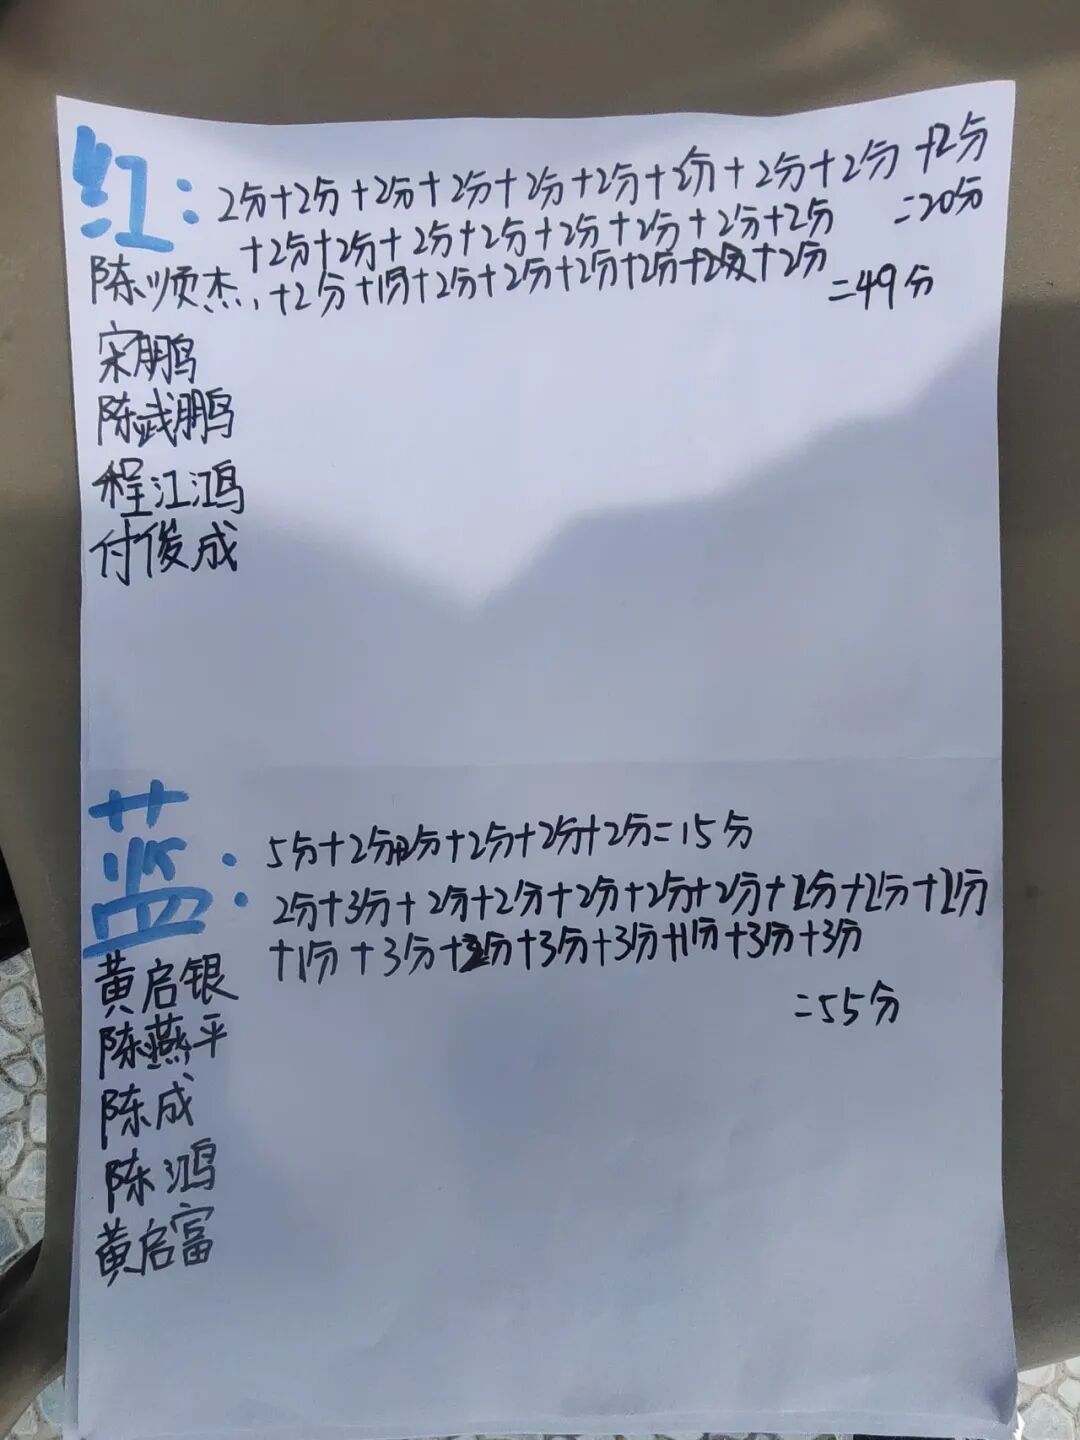 红：2分+2分+2分+2分+2分+2分+2分+2分+2分+2分
=20分
+2分+2分+2分+2分+2分+2分+2分+2分
陈顺杰，+2分+1分+2分+2分+2分+2分+2分+2分
=49分
宋鹏
陈武鹏
程江鸿
付俊成
蓝：
5分+2分+2分+2分+2分+2分=15分
2分+3分+2分+2分+2分+2分+2分+2分+2分+2分
+1分+3分+2分+3分+3分+1分+3分+3分
=55分
黄启银
陈燕平
陈成
陈鸿
黄启富